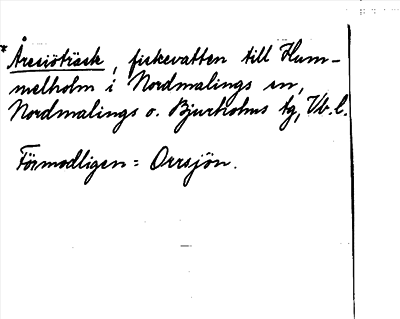 *Åresiöträsk, fiskevatten till Hum-
melholm i Nordmalings sn,
Nordmalings o. Bjurholms tg, Vb. l.
Förmodligen = Orrsjön.